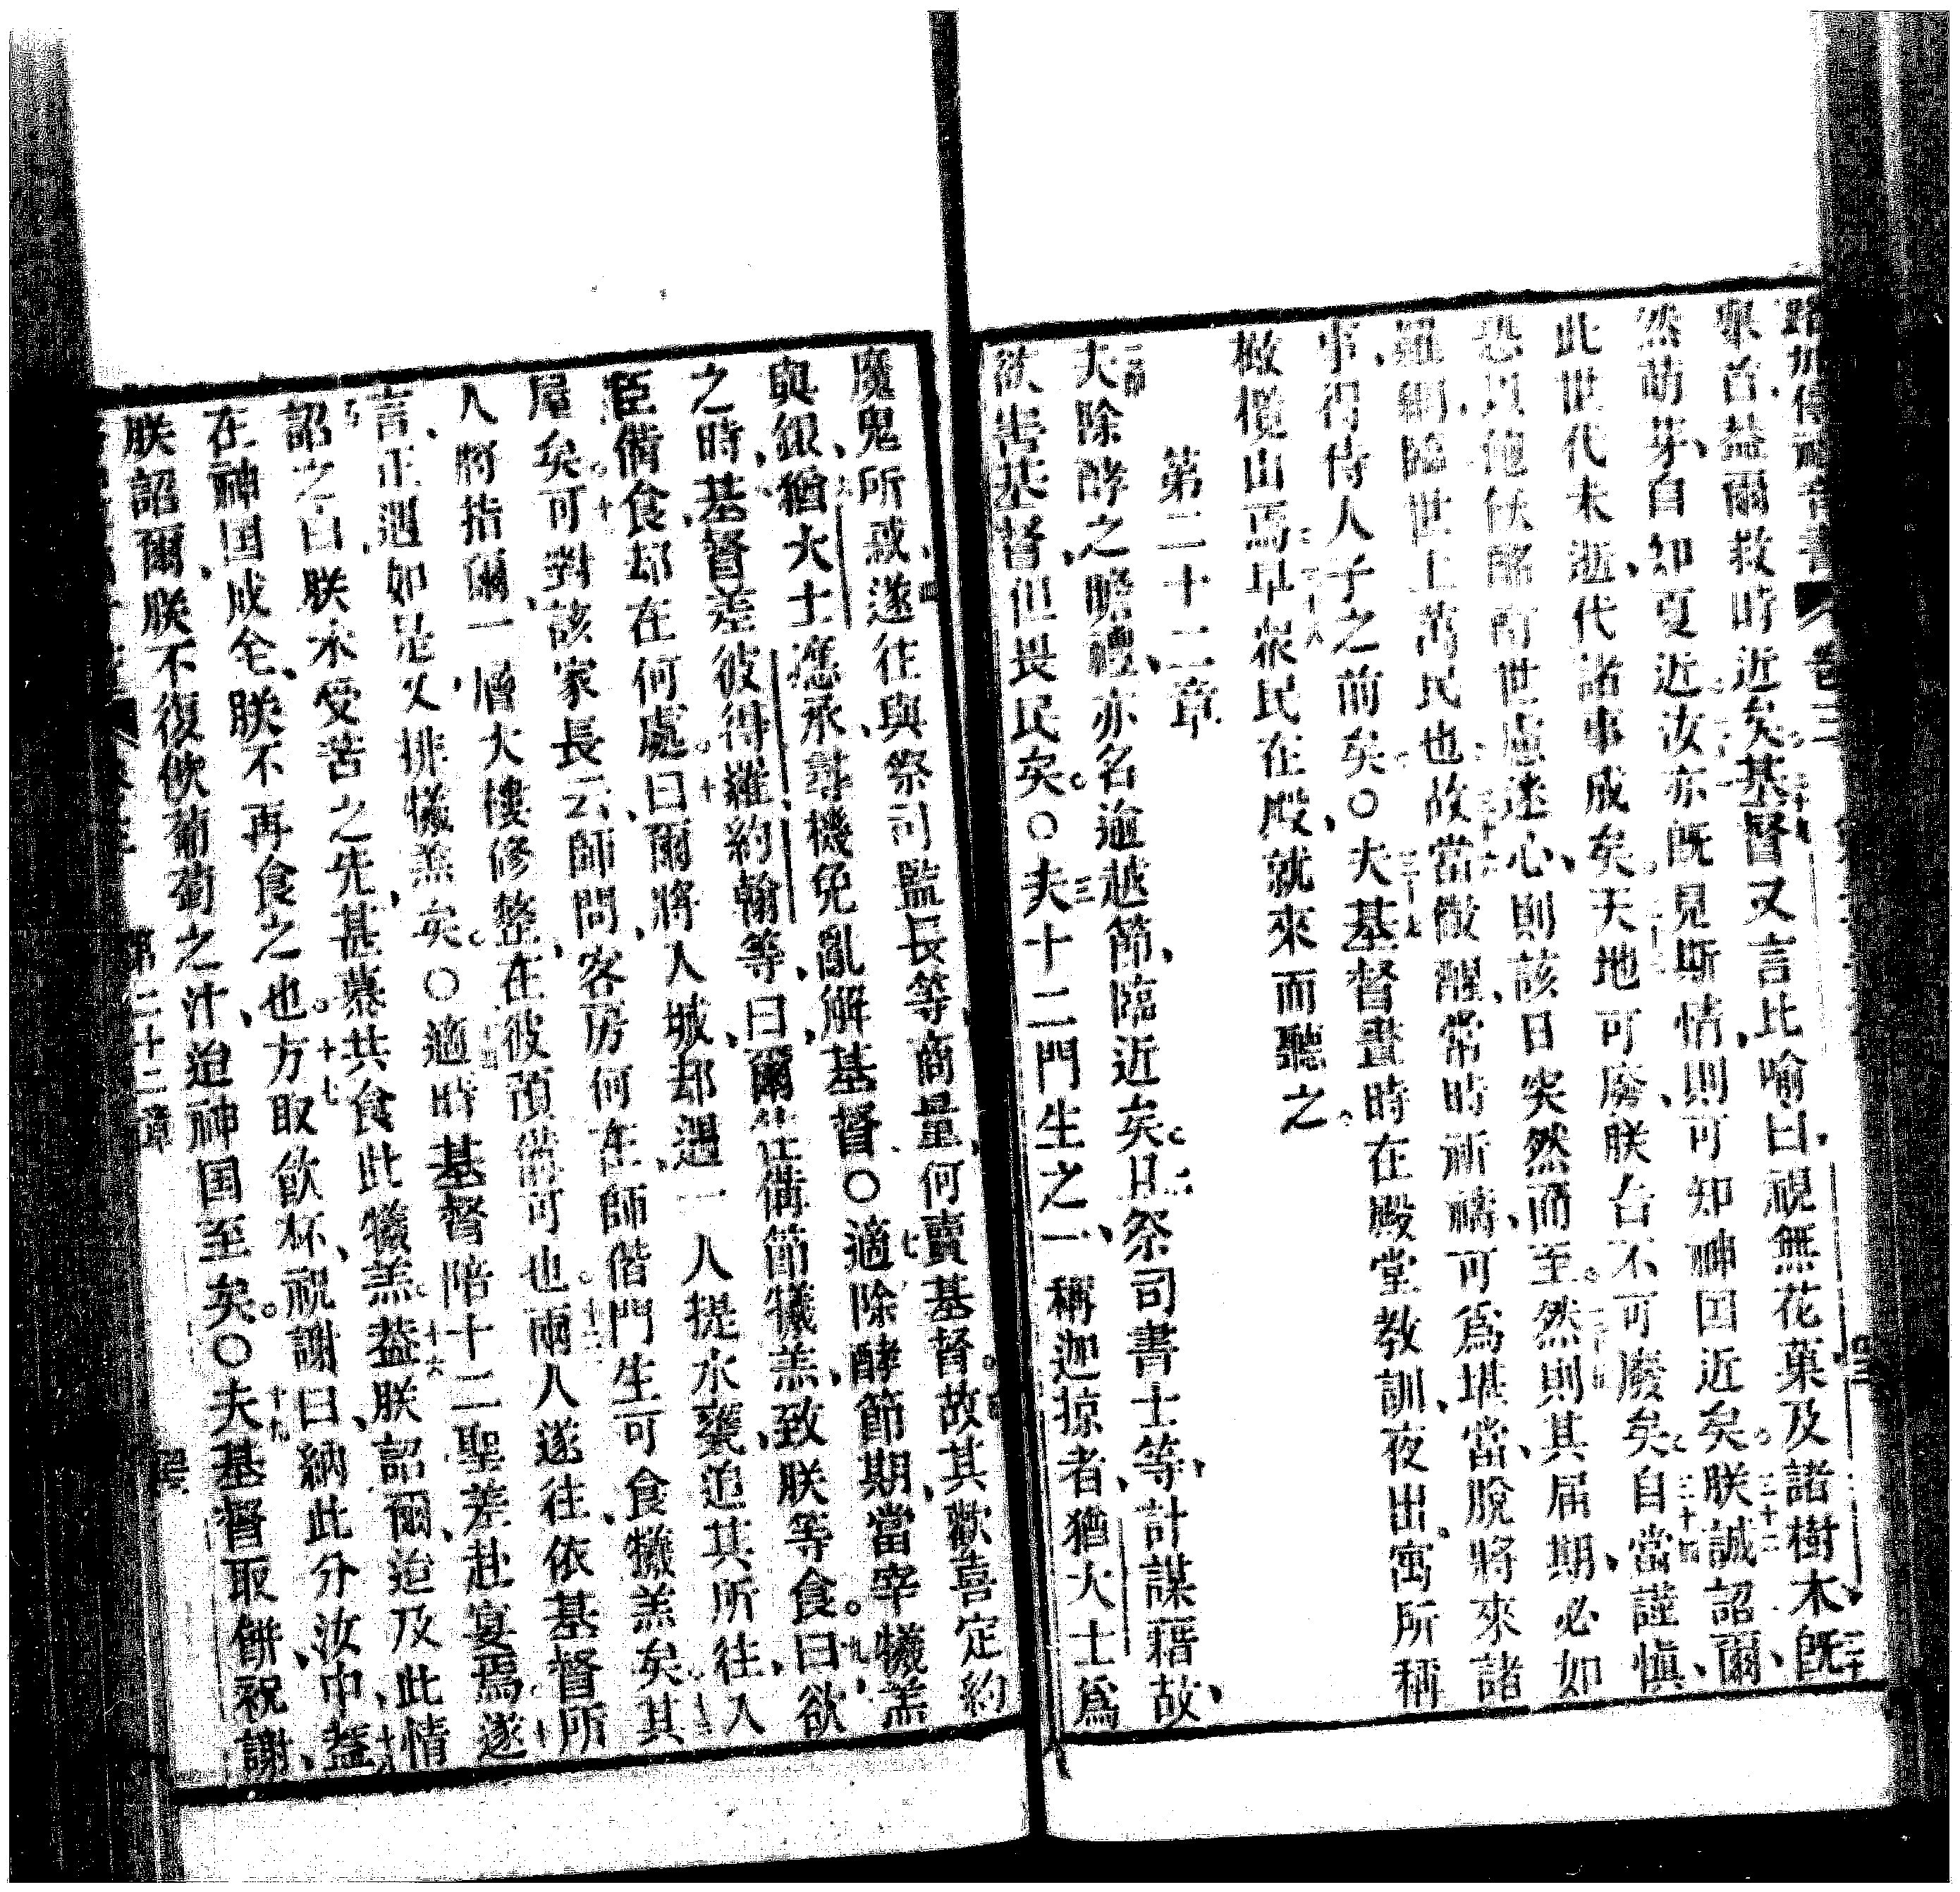 路加傳福音書 卷三
舉首葢爾救時近矣基督又言比喻曰視無花菓及諸樹木旣
然萌芽自知夏近汝亦旣見斯情則可知神囯近矣朕誠詔爾
此世代未逝代諸事成矣天地可廢朕言不可廢矣自當謹愼
恐以飽飫酩酊世慮迷心則該日突然而至然則其届期必如
羅網臨世上萬民也故當儆醒常時祈禱可爲堪當脫將來諸
事得侍人子之前矣○夫基督晝時在殿堂教訓夜出寓所稱
橄欖山焉早衆民在殿就來而聽之
第二十二章
夫除酵之瞻禮亦名逾越節臨近矣 祭司書士等計謀藉故
欲害基督但畏民矣○夫十二門生之一稱迦掠者猶大士爲
魔鬼所惑遂往與祭司監長等商量何賣基督故其歡喜定約
與銀猶大士應承尋機免亂解基督○適除酵節期當宰犧羔
之時基督差彼得羅約翰等曰爾往備節犧羔致朕等食曰欲
臣備食却在何處曰爾將人城却遇一人提水甕追其所往入
屋矣可對該家長云師問客房何在師偕門生可食犧羔矣其
人將指爾一層大樓修整在彼預備可也兩人遂往依基督所
言正遇如是又排犧羔矣○適時基督陪十二聖差赴宴焉遂
詔之曰朕未受苦之先甚慕共食此犧羔葢朕詔爾迨及此情
在神囯成全朕不再食之也方取飲杯祝謝曰納此分汝中葢
朕詔爾朕不復飲葡萄之汁迨神囯至矣○夫基督取餅祝謝
第二十二章